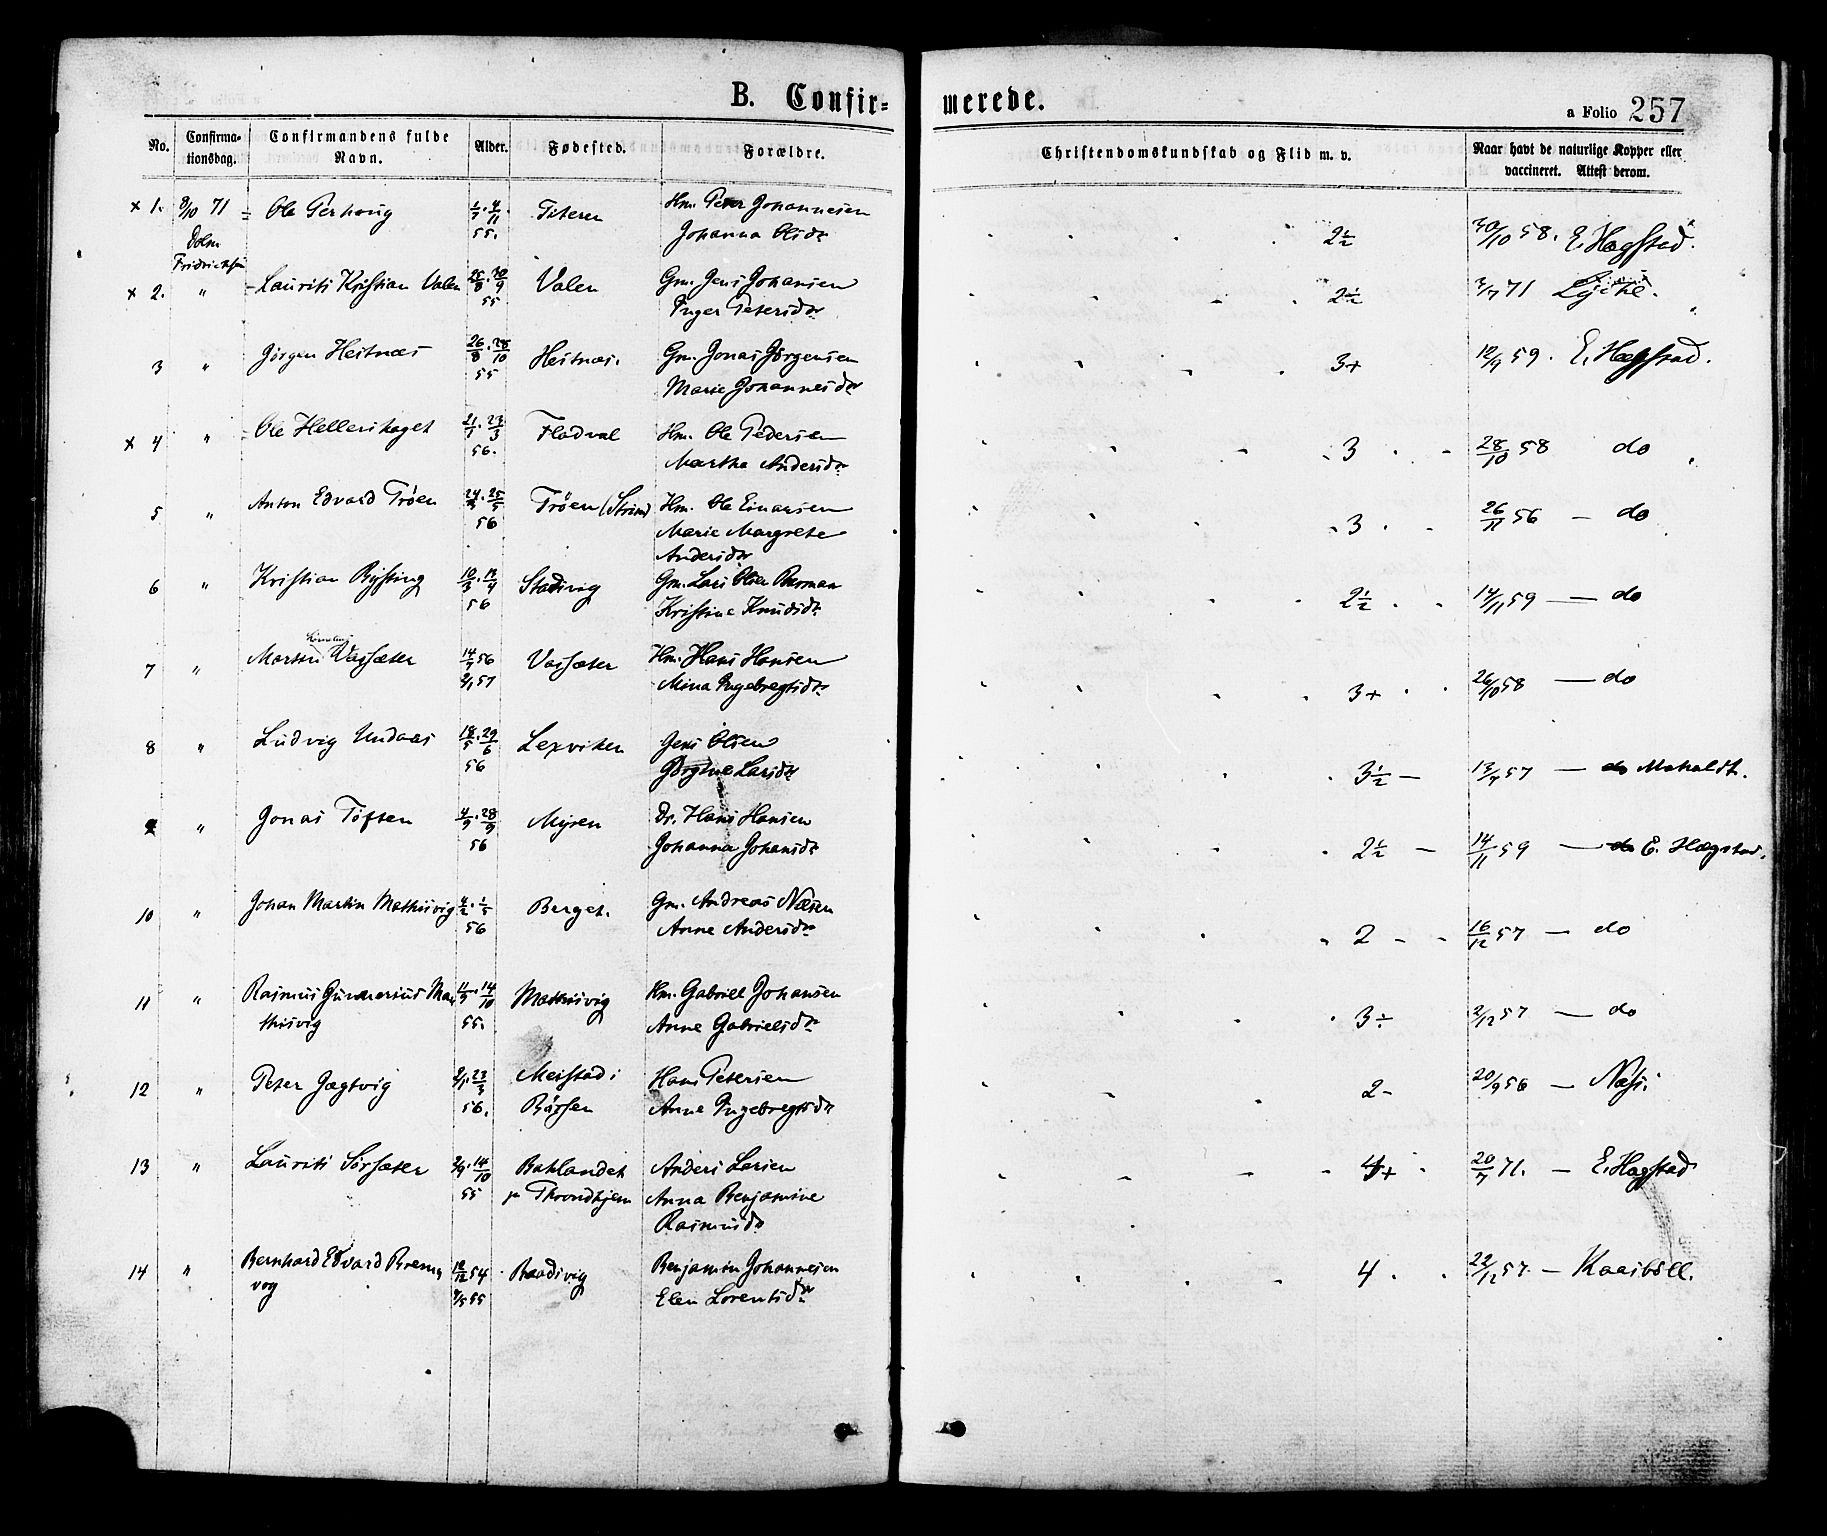 B. Confir-
merede.
a Folio 257
No.
Confirma-
tionsdag.
Confirmandens fulde
Navn.
Alder.
Fødested.
Forældre.
Christendomskundskab og Flid m. v.
Naar havt de naturlige Kopper eller
vaccineret. Attest derom.
x 1. 8/10 71 Ole Terhoug 4/11 55. Titeren Hm. Peter Johannesen 2½ 30/10 58. E. Hagstad.
Dolm Johanna Olsdr
Fridrichsen
x 2. " Laurits Kristian Valen 25/8. 30/9 55 Valen Gm. Jens Johansen 2½ 3/7 71
Inger Petersdr
3 " Jørgen Hestnæs 26/8. 28/10 55 Hestnæs. Gm. Jonas Jørgensen 3+ 12/9 59. E. Hagstad.
Marie Johannesdr
x 4 " Ole Hellerskaget 21/1. 23/3 56. Fladval Hm. Ole Pedersen 3 28/10 58 do
Martha Andersdr
5 " Anton Edvard Trøen 25/5 56 Trøen (Strøm) Hm. Ole Einarsen 3 26/11 56 — do
Marie Margrete
Andersdr
6 " Kristian Rysting 10/3. 13/4 56 Stadsvig Gm. Lars Olsen 2½ 14/11 59 — do
Kristine Knudsdr
7 " Vassæter 14/9 56 2/1 57 Vassæter Hm. Hans Hansen 3+ 26/10 58 — do
Mina Ingebregtsdr
8 " Ludvig Undaas 18/5. 29/6 56 Lexviken Jens Olsen 3½ — 13/7 57 —
Jørgine Larsdr
9 " Jonas Tøften 4/9. 28/9 56 Myren Dr. Hans Hansen 2½ — 14/11 59 — E. Hagstad.
Johanna Johansdr
10 " Johan Martin Mathisvig 4/2. 1/5 56 Berget. Gm. Andreas Næsen 2 - 16/12 57 — do
Anne Andersdr
11 " Rasmus Gunnerius Ma- 11/9. 14/10 55. Mathisvig Hm. Gabriel Johansen 3÷ 2/12 57 — do
thisvig Anne Gabrielsdr
12 " Peter Jægtvig 2/1. 23/3 56. Meistad i Hans Petersen 2- 20/9 56 —
Børsen Anne Ingebregtsdr
13 " Laurits Sørsæter 2/9. 14/10 55 Baklandet Anders Larsen 4+ 20/7 71. — E. Hagstad
pr Throndhjem Anna Benjamine
Rasmusdr
14 " Bernhard Edvard Brems- 12/12 54 Raadsvig Benjamin Johannesen 4 22/12 57. —
vog 4/5 55 Elen Lorentsdr